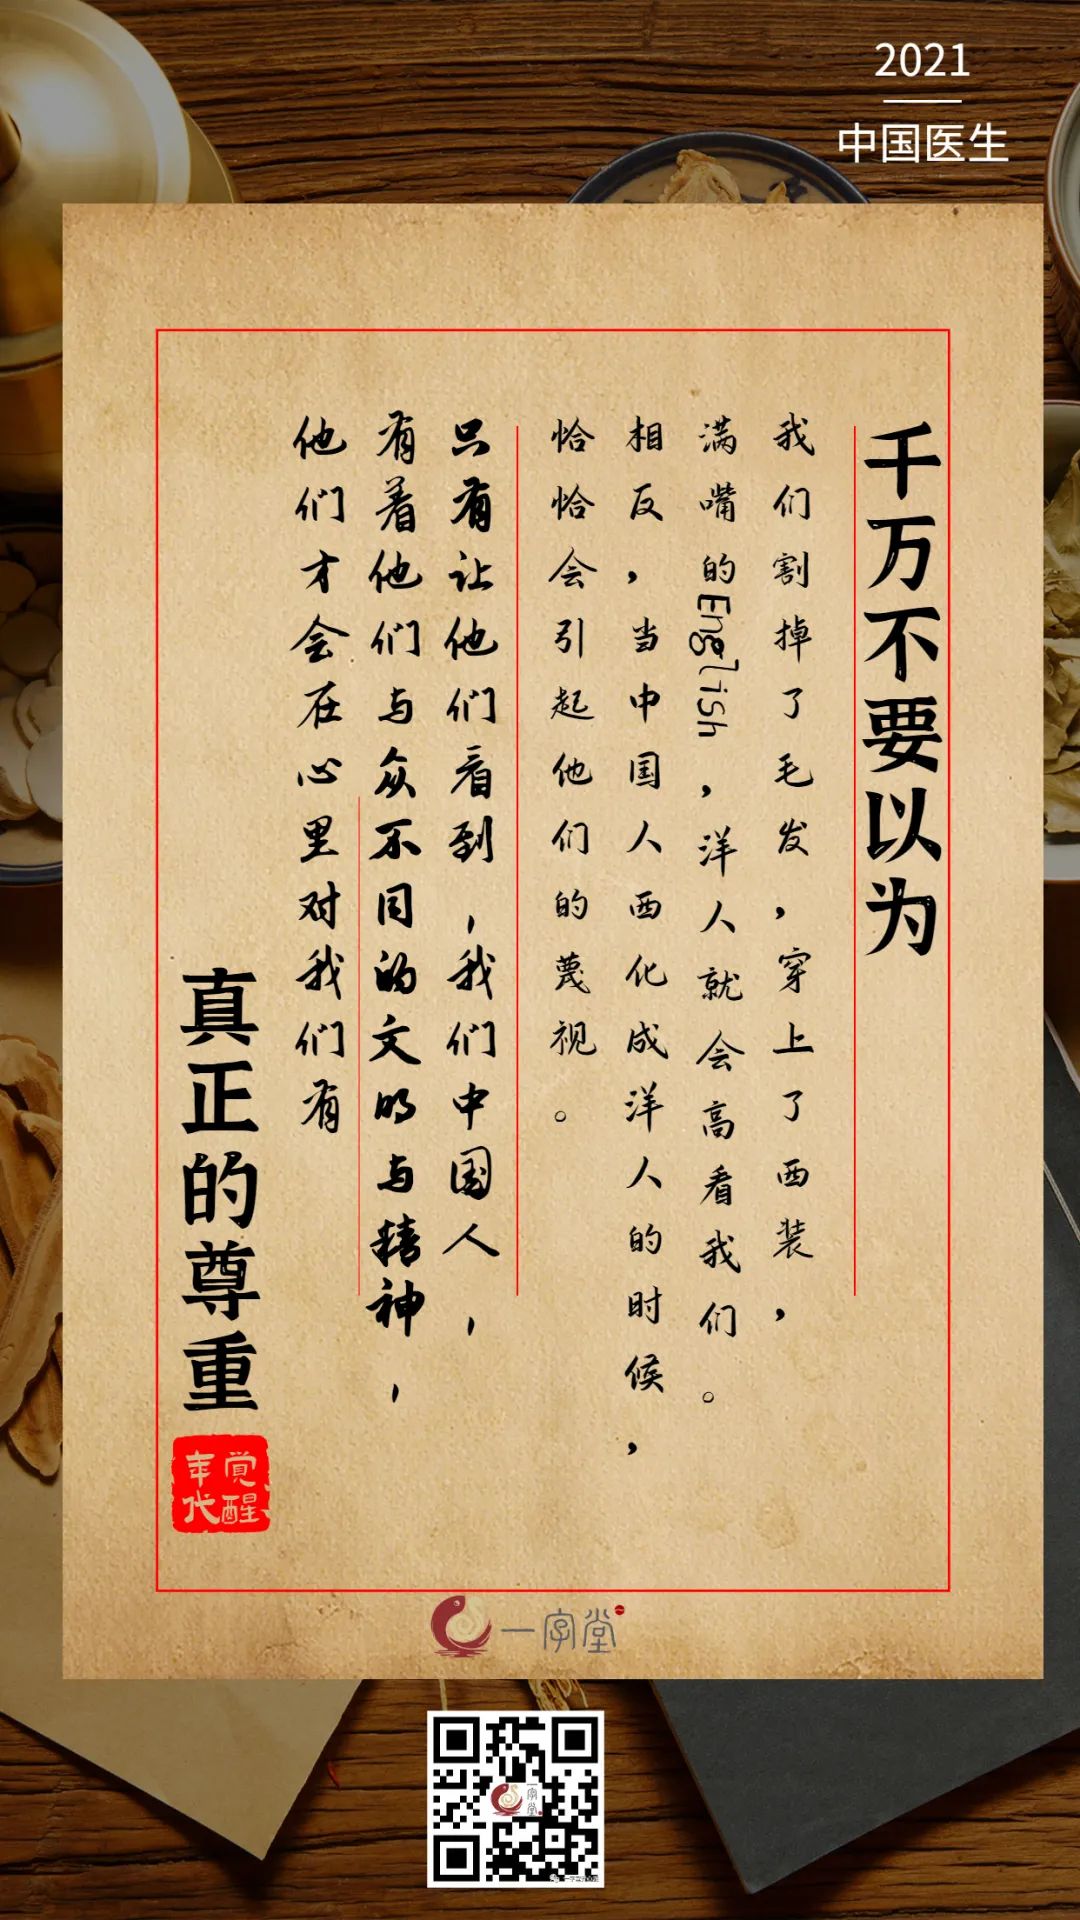 2021
中国医生
千万不要以为
我们割掉了毛发，穿上了西装，
满嘴的English，洋人就会高看我们。
相反，当中国人西化成洋人的时候，
恰恰会引起他们的蔑视。
只有让他们看到，我们中国人，
有着他们与众不同的文明与精神，
他们才会在心里对我们有
真正的尊重
觉醒
年代
一字堂